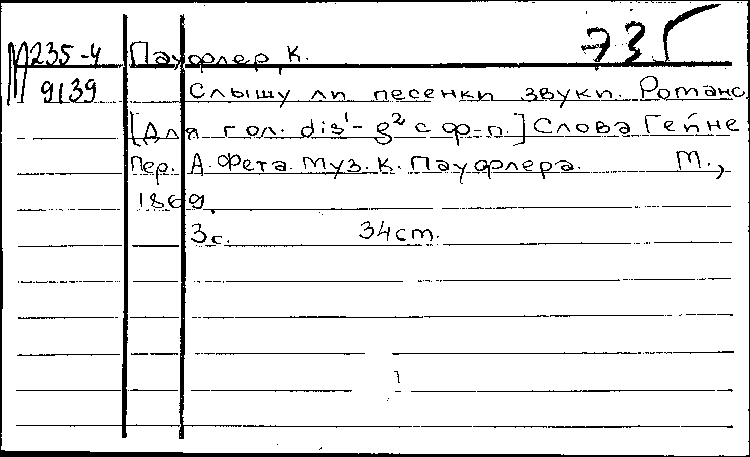 735
М235-4 Пауфлер, К.
9139 Слышу ли песенки звуки. Романс.
[Для гол. dis¹-g² с ф-п.] Слова Гейне
Пер. А. Фета. Муз. К. Пауфлера. М.,
1869.
3с. 34cm.